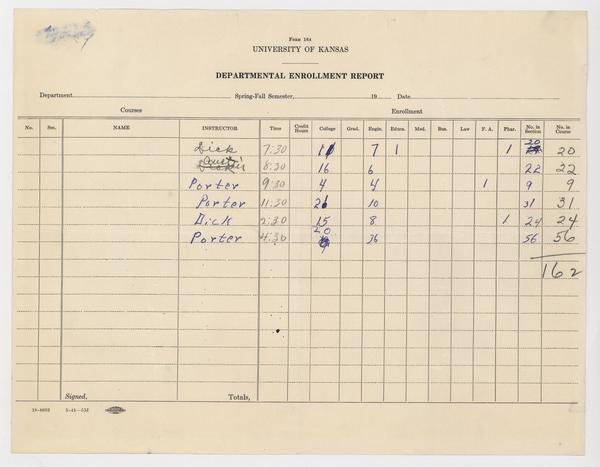 Form 164
UNIVERSITY OF KANSAS
DEPARTMENTAL ENROLLMENT REPORT
Department Spring-Fall Semester, 19 Date
Courses Enrollment
No. Sec. NAME INSTRUCTOR Time Credit Hours College Grad. Engin. Educa. Med. Bus. Law F. A. Phar. No. in Section No. in Course
Dick 7:30 11 7 1 1 20 20
8:30 16 6 22 22
Porter 9:30 4 4 1 9 9
Porter 11:30 21 10 31 31
Dick 2:30 15 8 1 24 24
Porter 4:30 20 36 56 56
162
Signed, Totals,
5-41—5M